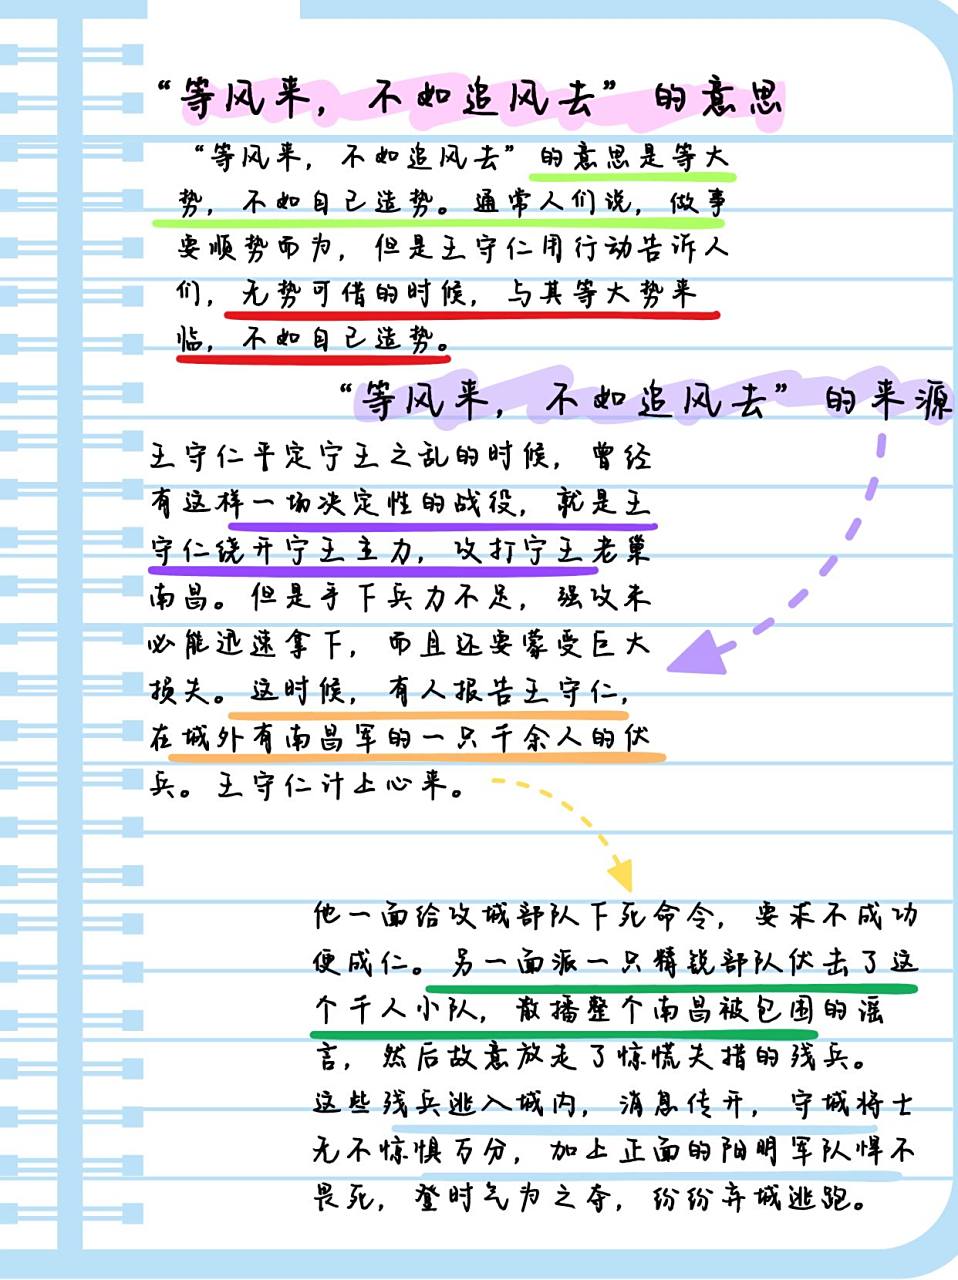 “等风来，不如追风去”的意思
“等风来，不如追风去”的意思是等大
势，不如自己造势。通常人们说，做事
要顺势而为，但是王守仁用行动告诉人
们，无势可借的时候，与其等大势来
临，不如自己造势。
“等风来，不如追风去”的来源
王守仁平定宁王之乱的时候，曾经
有这样一场决定性的战役，就是王
守仁绕开宁王主力，攻打宁王老巢
南昌。但是手下兵力不足，强攻未
必能迅速拿下，而且还要蒙受巨大
损失。这时候，有人报告王守仁，
在城外有南昌军的一只千余人的伏
兵。王守仁计上心来。
他一面给攻城部队下死命令，要求不成功
便成仁。另一面派一只精锐部队伏击了这
个千人小队，散播整个南昌被包围的谣
言，然后故意放走了惊慌失措的残兵。
这些残兵逃入城内，消息传开，守城将士
无不惊惧万分，加上正面的阳明军队悍不
畏死，登时气为之夺，纷纷弃城逃跑。